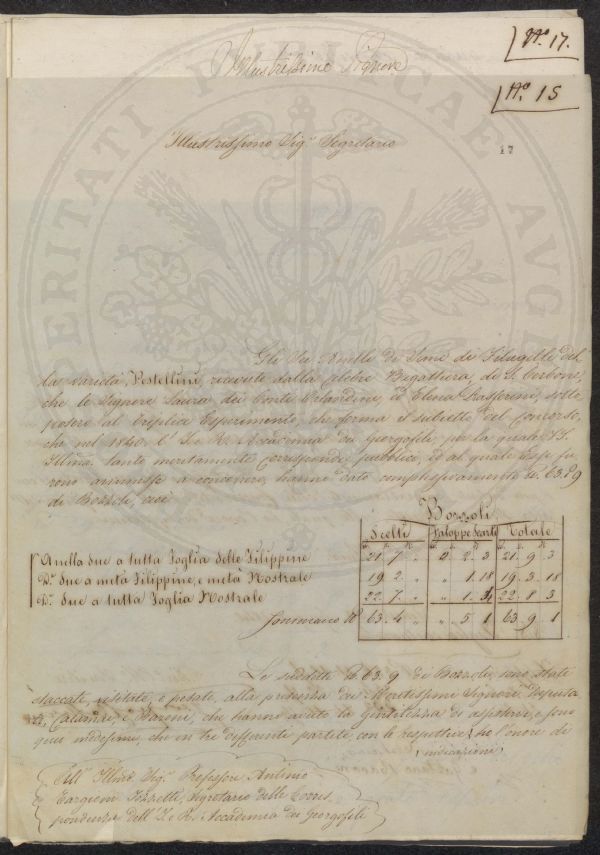 Nº 17.
Illustrissimo Signore
Nº 15
Illustrissimo Sig.r Segretario
17
Gli Anella di Semi di Filugelli del
la varietà Pestellini, ricevute dalla celebre Bigattiera di S. Cerbone,
che le Signore Laura dei Conti Orlandini, ed Elena Rasponi, sotto
posere al triplice Esperimento, che forma il subietto del Concorso,
che nel 1840. l'I. e R. Accademia dei Georgofili, per la quale VS.
Illma. tanto meritamente corrisponde pubblicò, ed al quale Esse fu
rono ammesse a convenire, hanno dato complessivamente lb. 63. 9
di Bozzoli, cioè
Bozzoli
Scelti Faloppe Scarti Totale
Anella due a tutta foglia delle Filippine 21. 7 " 2. 3 21. 9 3
D.e due a metà Filippine, e metà Nostrale 19 2 " 1. 18 19. 3. 18
D.e due a tutta foglia Nostrale 22. 7. " 1. 22. 8 3
Sommano lb 63. 4 " 5 1 63. 9 1
Le suddette lb 63. 9 di Bozzoli, sono state
staccate, visitate, e pesate, alla presenza dei Meritissimi Signori
Calamai, e Baroni, che hanno avuto la gentilezza di assistervi, e sono
quei medesimi, che in tre differente partite con le respettive ho l'onore di
indicazioni
All' Illmo Sig.r Professore Antonio
Targioni Tozzetti, Segretario delle Corris
pondenze dell' I. e R. Accademia dei Georgofili
VERITATI PUBLICAE